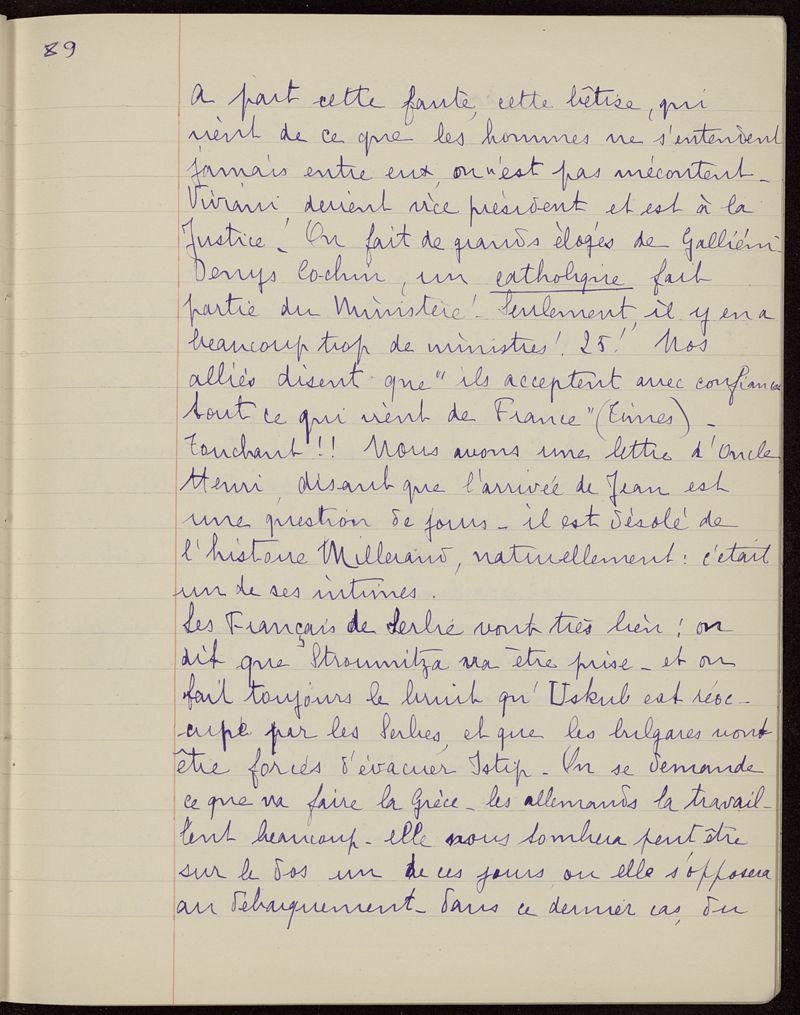 89
A part cette faute, cette bêtise, qui
vient de ce que les hommes ne s'entendent
jamais entre eux, on n'est pas mécontent _
Viviani, devient vice président et est à la
Justice ! On fait de grands éloges de Galliéni
Denys Cochin, un catholique fait
partie du Ministère ! Seulement, il y en a
beaucoup trop de ministres ! 25 ! Nos
alliés disent que "ils acceptent avec confiance
tout ce qui vient de France" (Times) _
Touchant !!! Nous avons une lettre d'Oncle
Henri, disant que l'arrivée de Jean est
une question de jours _ il est désolé de
l'histoire Millerand, naturellement : c'était
un de ses intimes.
Les Français de Serbie vont très bien ; on
dit que Stroumitza va être prise _ et on
fait toujours le bruit qu'Uskub est réoc-
cupé par les Serbes, et que les bulgares vont
être forcés d'évacuer Istip _ On se demande
ce que va faire la Grèce _ les allemands la travail-
lent beaucoup _ elle nous tombera peut être
sur le dos un de ces jours ou elle s'opposera
au débarquement _ dans ce dernier cas, du